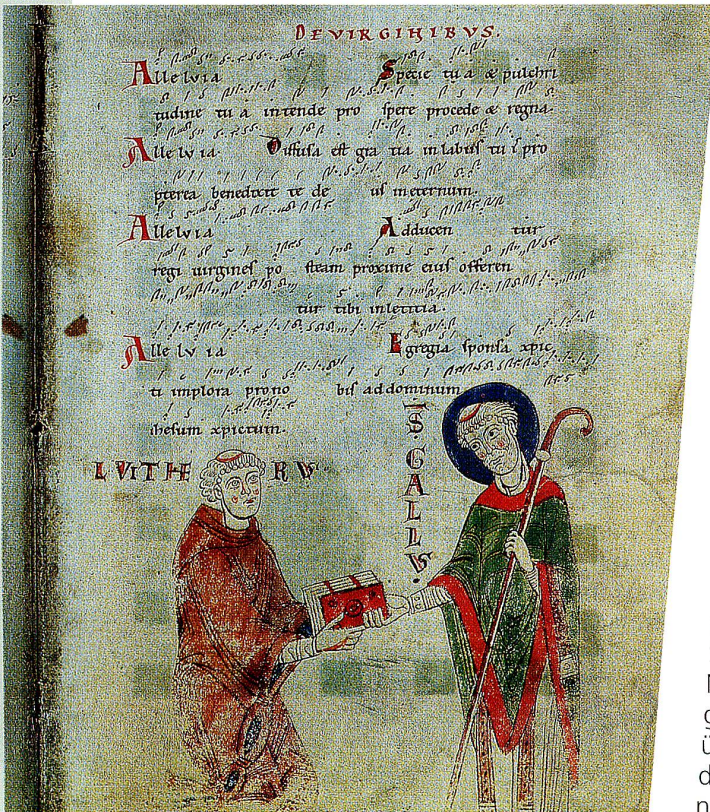 DE VIRGINIBVS.
Alleluia Specie tu a & pulchri
tudine tu a intende pro spere procede & regna.
Alleluia. Diffusa est gra tia in labiis tu is pro
pterea benedixit te de us in eternum.
Alleluia Adducen tur
regi uirgines po steam proxime eius offeren
tur tibi in leticia.
Alle lu ia Egregia sponsa xpic
ti implora pro no bis ad dominum
ihesum xpictum.
S. GALLVS.
LVITHERVS